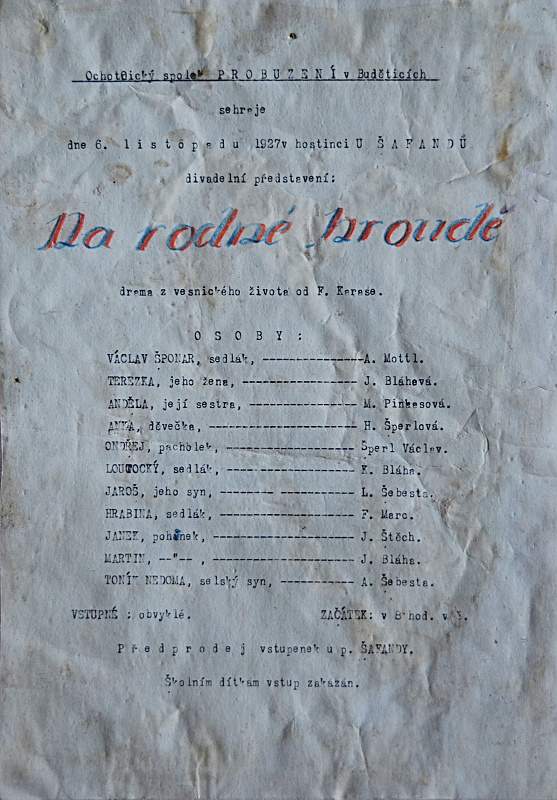 Ochotnický spolek P R O B U Z E N Í v Buděticích
sehraje
dne 6. l i s t o p a d u 1927v hostinci U Š A F A N D Ů
divadelní představení:
Na rodné hroudě
drama z vesnického života od F. Karase.
O S O B Y :
VÁCLAV ŠPONAR, sedlák, ---------------A. Mottl.
TEREZKA, jeho žena, ----------------- J. Bláhová.
ANDĚLA, její sestra, ---------------- M. Pinkasová.
ANKA, děvečka, --------------------- H. Šperlová.
ONDŘEJ, pacholek, ------------------- Šperl Václav.
LOUTOCKÝ, sedlák, ------------------- K. Bláha.
JAROŠ, jeho syn, -------------------- L. Šebesta.
HRABINA, sedlák, -------------------- F. Marc.
JANEK, pohůnek, --------------------- J. Štěch.
MARTIN, --"-- , --------------------- J. Bláha.
TONÍK NEDOMA, selský syn, ----------- A. Šebesta.
VSTUPNÉ : obvyklé. ZAČÁTEK: v 8 hod.
P ř e d p r o d e j vstupenek u p. ŠAFANDY.
Školním dítkám vstup zakázán.